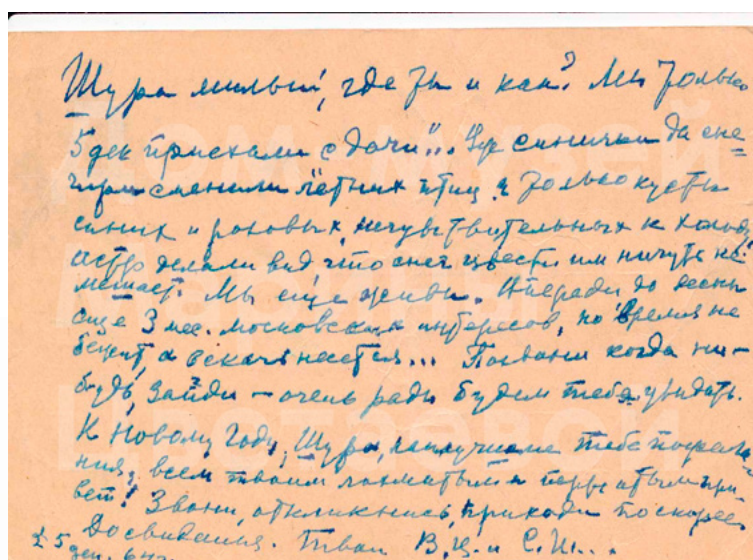 Шура милый, где ты и как? Мы только
5 дек приехали с "дачи"... Уж синички да сне=
гири сменили летних птиц и только кусты
синих и розовых, нечувствительных к холоду
астр делали вид что снег цвести им ничуть не
мешает. Мы ещё живы. Впереди до весны
ещё 3 мес. московских интересов, но время не
бежит, а вскачь несётся... Позвони когда ни-
будь, зайди - очень рады будем тебя увидать.
К Новому Году, Шура, наилучшие тебе пожела=
ния, всем твоим лохматым и пернатым при-
вет! Звони, откликнись, приходи поскорее.
До свиданья. Твои В.Ц. и С.И.
25
дек.
Дом-музей
Марины
Цветаевой